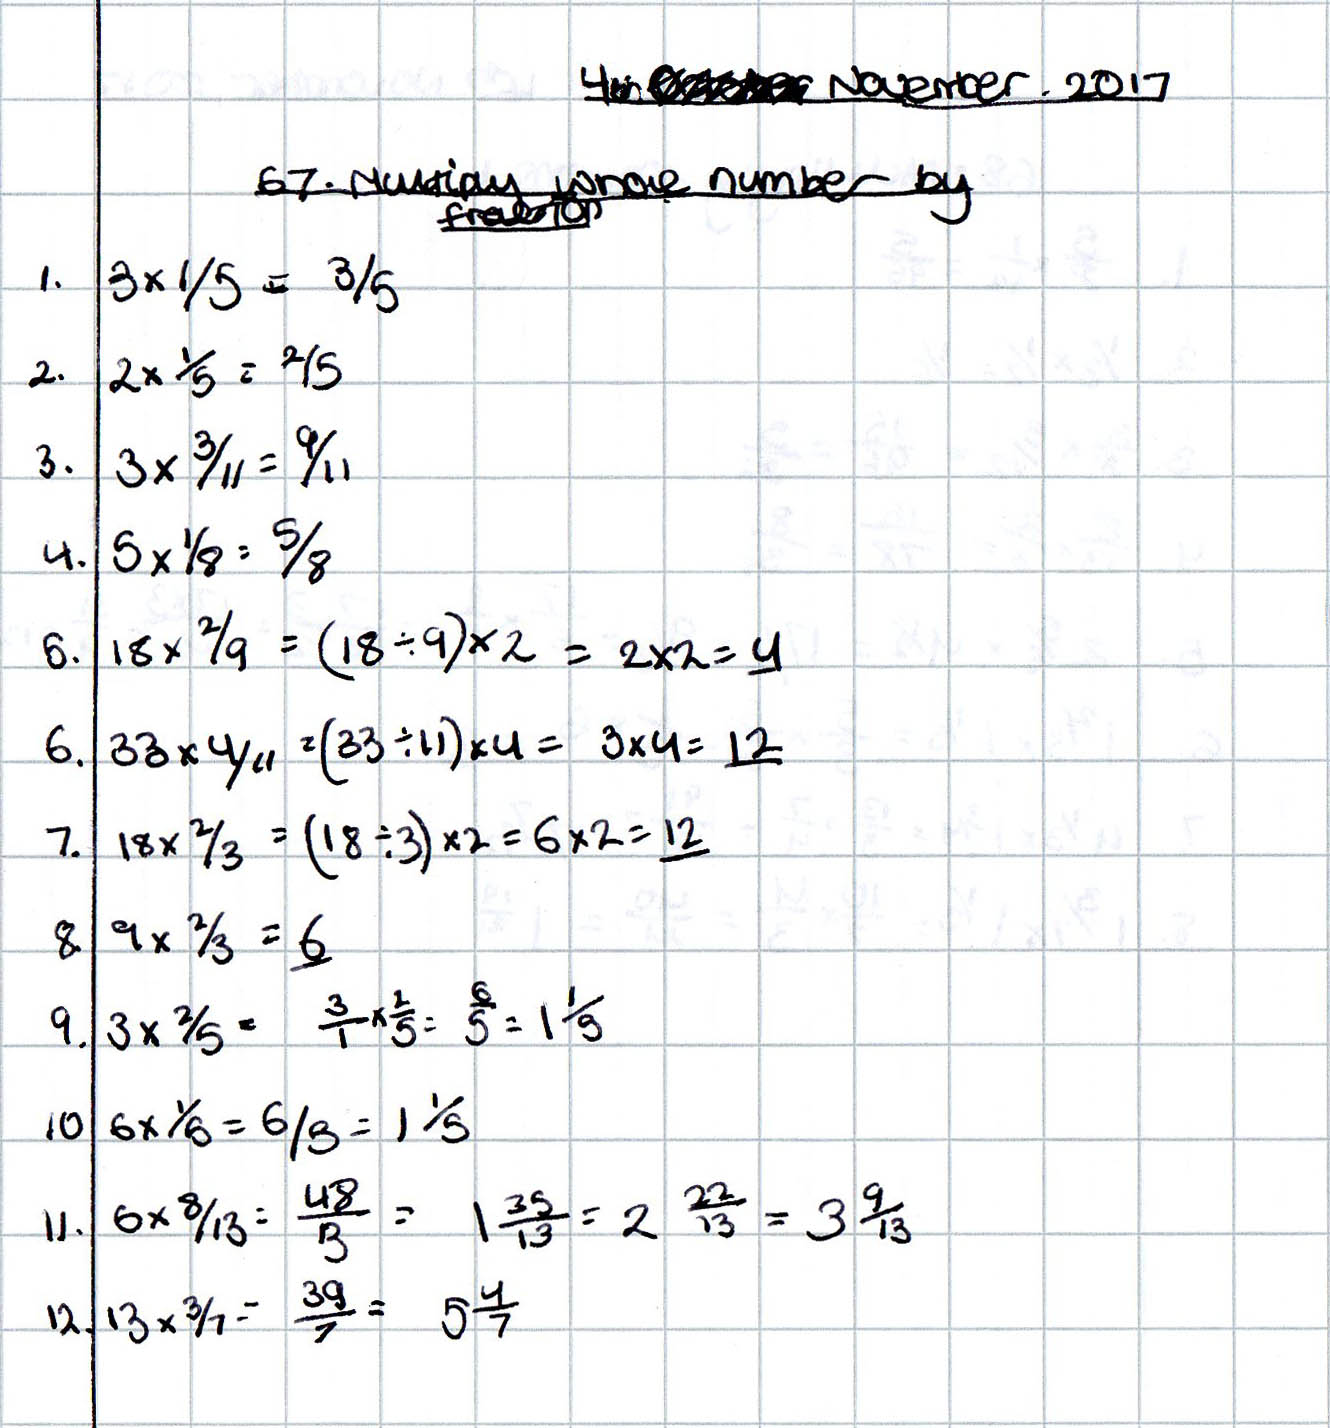 4th November. 2017
67. Multiply whole number by
fraction
1. 3 × 1/5 = 3/5
2. 2 × 1/5 = 2/5
3. 3 × 3/11 = 9/11
4. 5 × 1/8 = 5/8
5. 18 × 2/9 = (18 ÷ 9) × 2 = 2 × 2 = 4
6. 33 × 4/11 = (33 ÷ 11) × 4 = 3 × 4 = 12
7. 18 × 2/3 = (18 ÷ 3) × 2 = 6 × 2 = 12
8. 9 × 2/3 = 6
9. 3 × 2/5 = 3/1 × 2/5 = 6/5 = 1 1/5
10 6 × 1/5 = 6/5 = 1 1/5
11. 6 × 8/13 = 48/13 = 1 35/13 = 2 22/13 = 3 9/13
12. 13 × 3/7 = 39/7 = 5 4/7